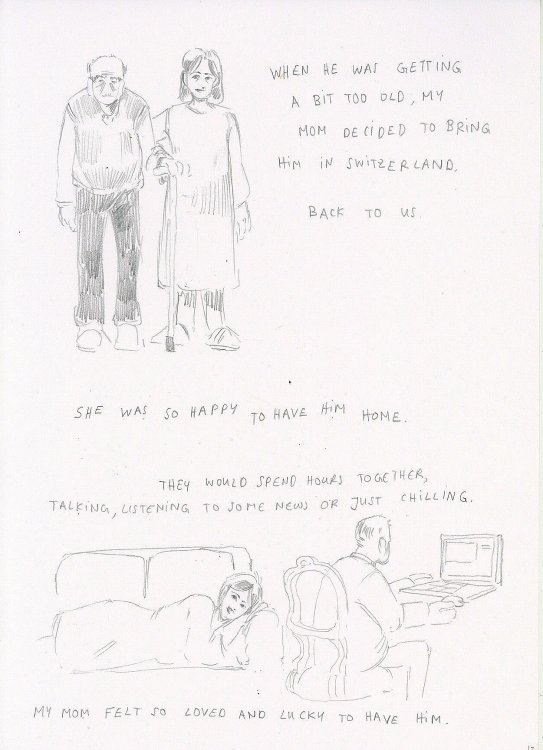 WHEN HE WAS GETTING
A BIT TOO OLD, MY
MOM DECIDED TO BRING
HIM IN SWITZERLAND.
BACK TO US.
SHE WAS SO HAPPY TO HAVE HIM HOME.
THEY WOULD SPEND HOURS TOGETHER,
TALKING, LISTENING TO SOME NEWS OR JUST CHILLING.
MY MOM FELT SO LOVED AND LUCKY TO HAVE HIM.